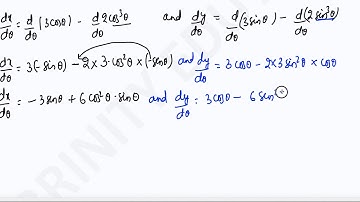 dx/dθ = d/dθ (3cosθ) - d 2cos³θ/dθ and dy/dθ = d/dθ (3sinθ) - d(2sin³θ)/dθ
dx/dθ = 3(-sinθ) - 2×3·cos²θ×(-sinθ) and dy/dθ = 3cosθ - 2×3sin²θ × cosθ
dx/dθ = -3sinθ + 6cos²θ·sinθ and dy/dθ = 3cosθ - 6sin